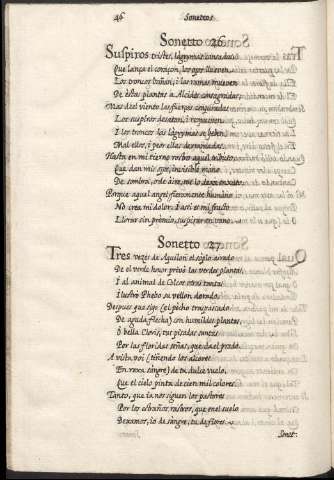 46 Sonettos
Sonetto 26.
Suspiros tristes, lagrimas cansadas
Que lança el coraçon, los ojos llueven,
Los troncos bañan, i las ramas mueven
De estas plantas a Alcides consagradas;
Mas del viento las fuerças conjuradas
Los suspiros desatan, i remueven
I los troncos las lagrimas se beben,
Mal ellos, i peor ellas derramadas.
Hasta en mi tierno rostro aquel tributo,
Que dan mis ojos, invisible mano
De sombra, o de aire, me lo dexa enxuto.
Porque aquel angel fieramente humano
No crea mi dolor. i asi es mi fructo
Llorar sin premio, i suspirar en vano.
Sonetto 27.
Tres vezes de Aquilon el soplo airado
De el verde honor privò las verdes plantas,
I al animal de Colcos otras tantas
Ilustrò Phebo su vellon dorado.
Despues que sigo (el pecho traspassado
De aguda flecha) con humildes plantas,
O bella Clori, tus pisadas sanctas
Por las floridas señas, que da el prado.
A vista voi (tiñendo los alcores
En roxa sangre) de tu dulce vuelo,
Que el cielo pinta de cien mil colores.
Tanto, que ia nos siguen los pastores
Por los estraños rastros, que en el suelo
Dexamos, io de sangre, tu de flores.
Sonet.